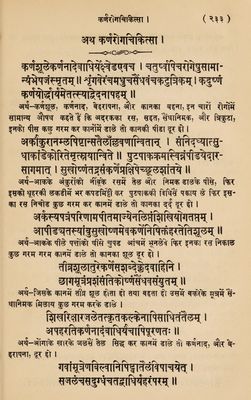 कर्णरोगचिकित्सा । (२३३)
अथ कर्णरोगचिकित्सा ।
कर्णशूलेकर्णनादेबाधिर्येक्ष्वेडएवच । चतुर्ष्वपिचरोगेषुसामा-
न्यंभेषजंस्मृतम् ॥ शृंगवेरंचमधुचसैंधवंचकटुत्रिकम् । कदुष्णं
कर्णयोर्द्धार्यमेतत्स्याद्वेदनापहम् ॥
अर्थ-कर्णशूल, कर्णनाद, बेहरापना, और कानका बहना, इन चारों रोगोंमें
सामान्य औषध कहते हैं कि अदरकका रस, सहत, सैंधानिमक, और त्रिकुटा,
इनको पीस कछु गरम कर कानोंमें डाले तो कानकी पीडा दूर हो ।
अर्काकुरानम्लपिष्टान्सतैलाँल्लवणान्वितान् । संनिदध्यात्सु-
धाकांडेकोरितेमृत्स्नयान्विते ॥ पुटपाकक्रमस्विन्नंपीडयेदार-
सागमात् । सुखोष्णंतद्रसंकर्णेप्रक्षिपेच्छूलशांतये ॥
अर्थ-आकके अंकुरोंको नींबूके रसमें तेल और निमक डालके पीसे, फिर
इसको थूहरकी लकडीमें भर कपडमिट्टी कर पुटपाककी विधिसे पकाय ले फिर इस-
का रस निचोड कुछ गरम कर कानोंमें डाले तो कानका दर्द दूर हो ।
अर्कस्यपत्रंपरिणामपीतमाज्येनलिप्तंशिखियोगतप्तम् ।
आपीड्यतस्यांबुसुखोष्णमेवकर्णेनिषिक्तंहरतेतिशूलम् ॥
अर्थ-आकके पीले पत्तोंको घीसे चुपड आंचमें भूनलेवे फिर इनका रस निकाल
कुछ गरम गरम कानमें डाले तो कानका शूल दूर हो ।
तीव्रशूलातुरेकर्णेसशब्देक्लेदवाहिनि ।
छागमूत्रंप्रशंसंतिकोष्णंसैंधवसंयुतम् ॥
अर्थ-जिसके कानमें तीव्र शूल होता हो तथा बहता हो उसमें बकरेके मूत्रमें सैं-
धानिमक मिलाय कुछ गरम करके डाले ।
शिखरिक्षारजलेतत्कृतकल्केनापिसाधितंतैलम् ।
अपहरतिकर्णनादंबाधिर्यंचापिपूरणतः ॥
अर्थ-ओंगाके खारके जलसे तेल सिद्ध कर कानमें डाले तो कर्णनाद, और बे-
हरापना, दूर हो ।
गवांमूत्रेणबिल्वानिपिष्ट्वातैलंविपाचयेत् ।
सजलंचसदुग्धंचतद्बाधिर्यहरंपरम् ॥